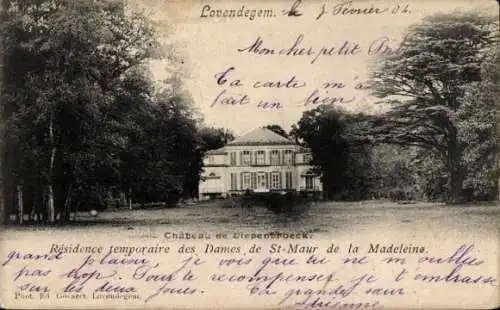 Lovendegem. le 7 Février 04
Mon cher petit
Ta carte m'a
fait un bien
Château de Diepenbroeck
Résidence temporaire des Dames de St-Maur de la Madeleine.
grand plaisir je vois que tu ne m'oublies
pas trop. Toute te récompenser je t'embrasse
sur tes deux joues. Ta grande sœur
Adrienne
Phot. Ed Govaert Lovendegem.